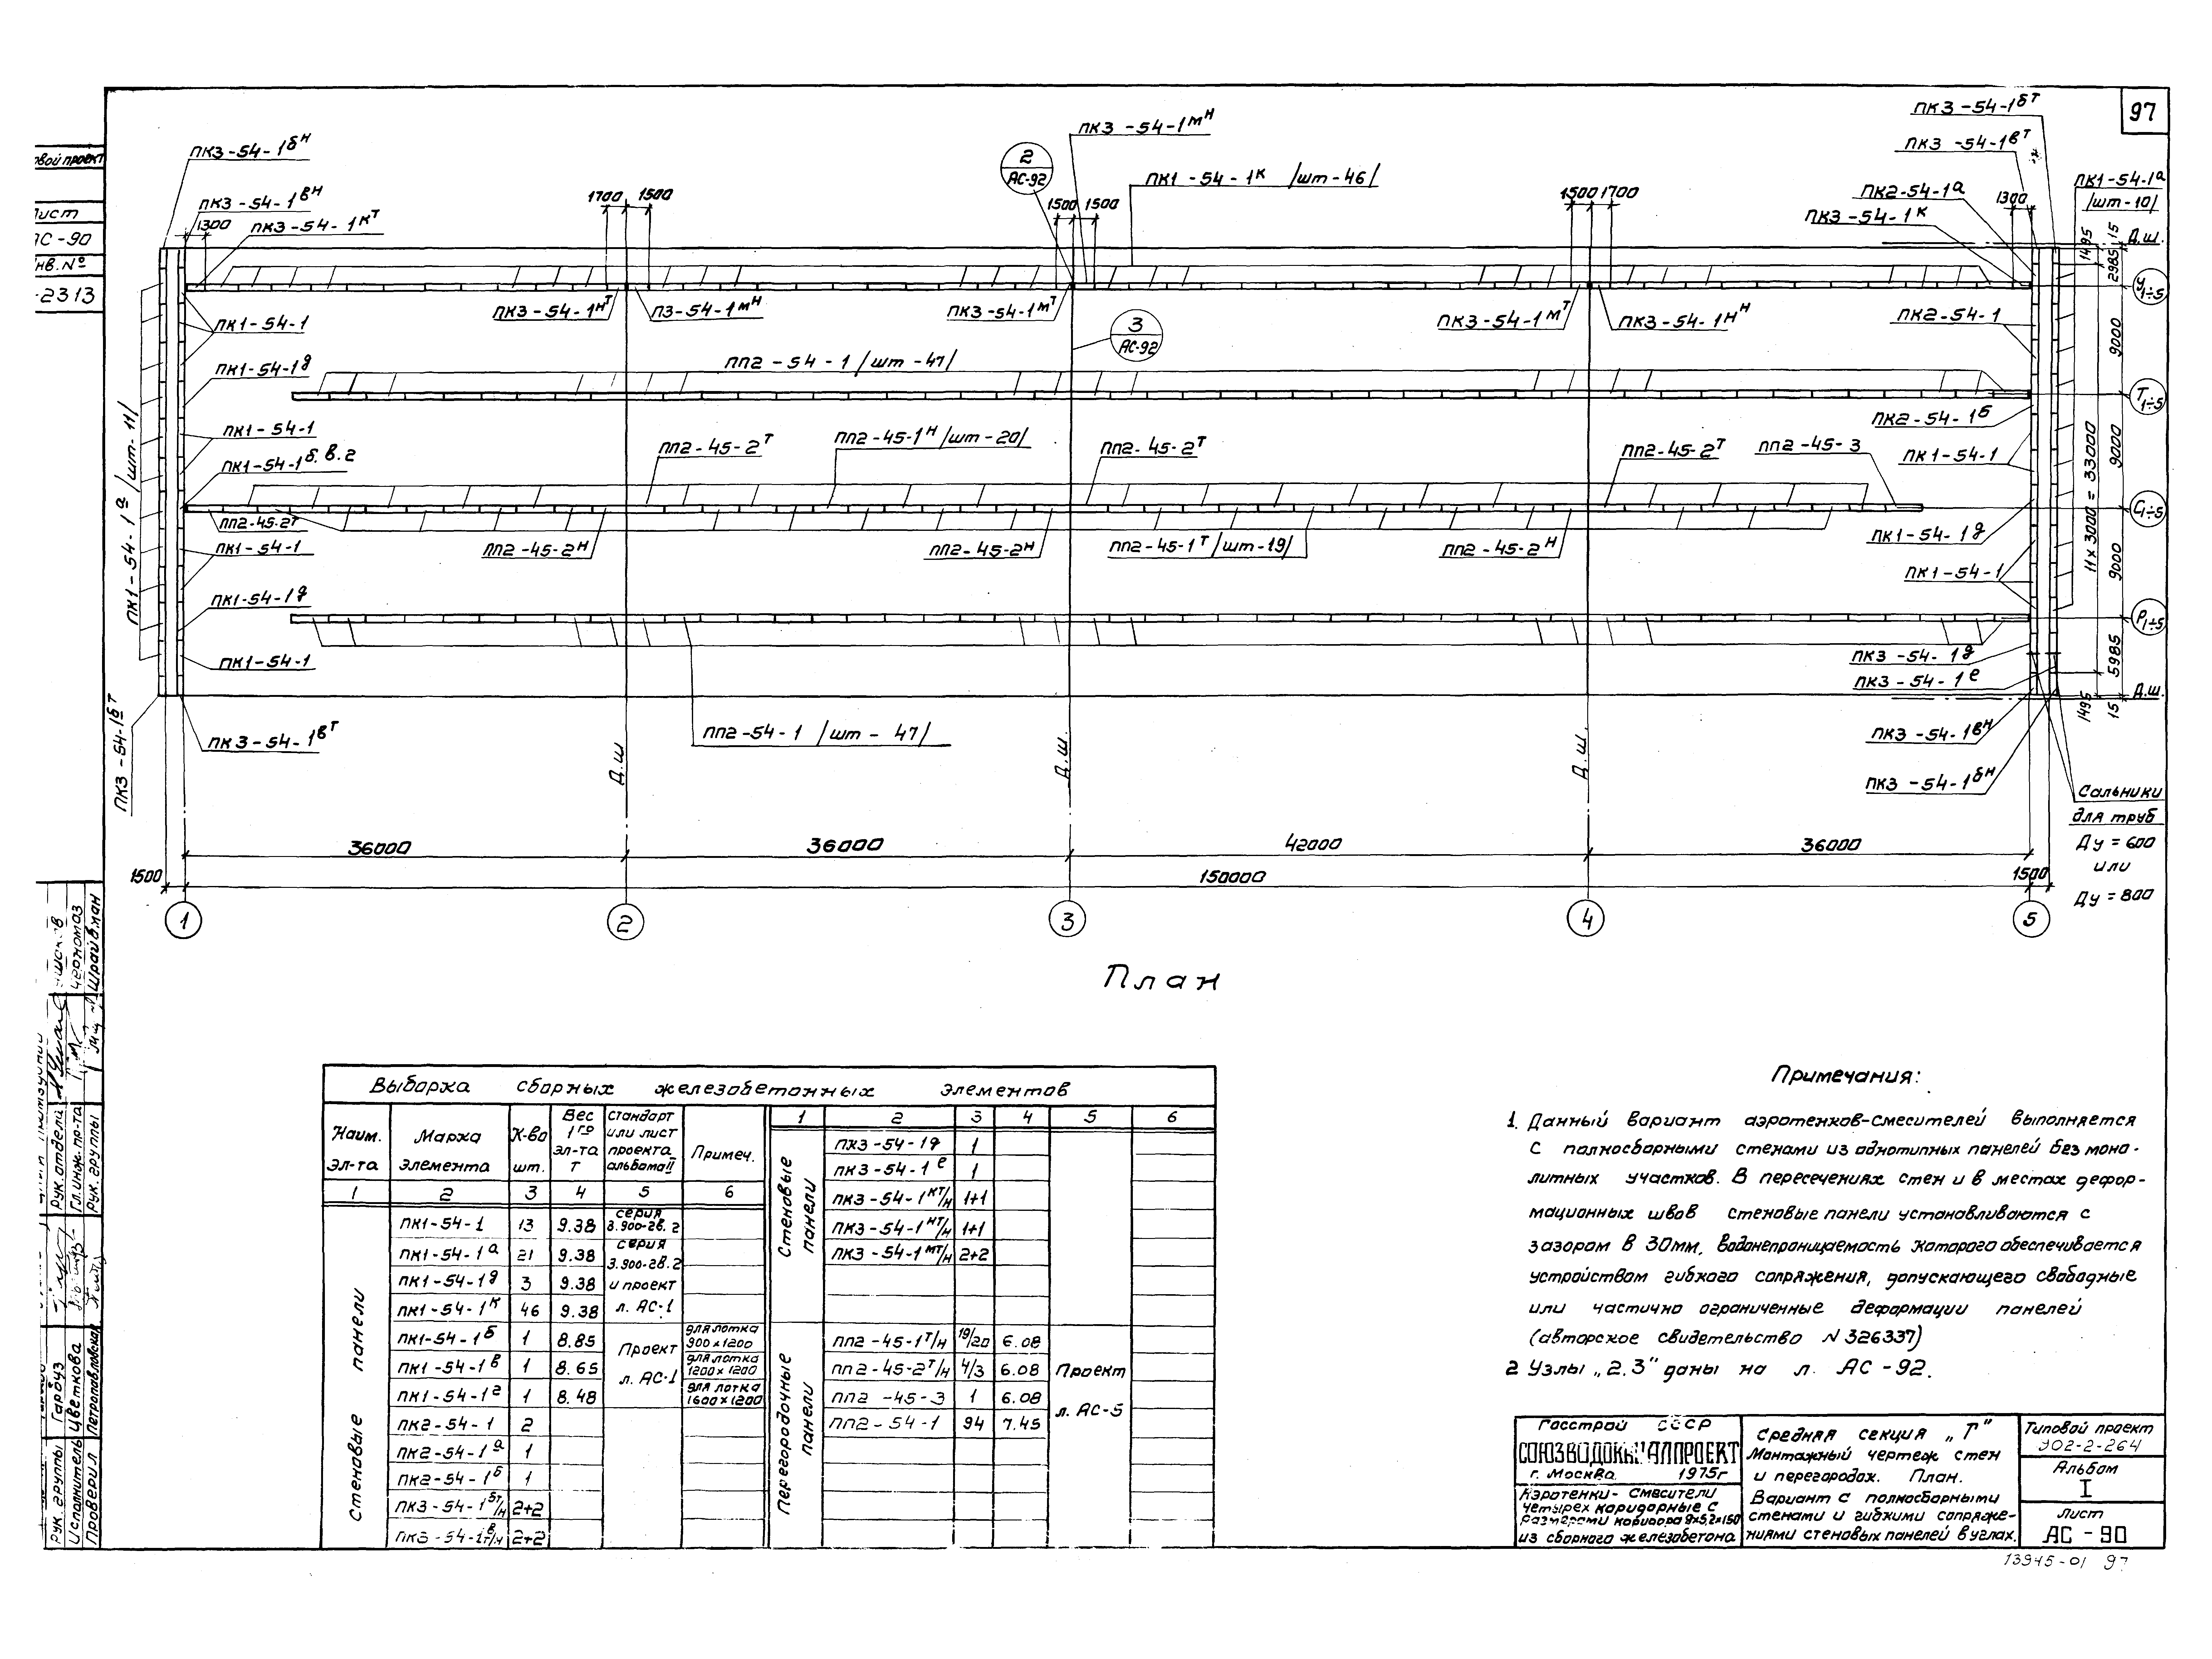 97
ПК3-54-1бН
ПК3-54-1вН
ПК3-54-1кТ
1300
1700 1500
2
АС-92
ПК3-54-1мН
ПК1-54-1К /шт-46/
1500 1500
1500 1700
ПК3-54-1бТ
ПК3-54-1вТ
ПК2-54-1а
ПК3-54-1К
1300
ПК1-54-1а
/шт-10/
1495
15
Д.ш.
2985
У1÷5
ПК3-54-1НТ
П3-54-1мН
ПК3-54-1мТ
3
АС-92
ПК3-54-1мТ
ПК3-54-1НН
ПК2-54-1
ПК1-54-1
ПП2-54-1 /шт-47/
ПК1-54-1д
9000
Т1÷5
ПК2-54-1б
ПК1-54-1
ПК1-54-1б.в.г
ПП2-45-2Т
ПП2-45-1Н /шт-20/
ПП2-45-2Т
ПП2-45-2Т
ПП2-45-3
ПК1-54-1
9000
11х3000=33000
С1÷5
ПП2-45-2Т
ПК1-54-1
ПП2-45-2Н
ПП2-45-2Н
ПП2-45-1Т /шт-19/
ПП2-45-2Н
ПК1-54-1д
ПК1-54-1
9000
ПК1-54-1а /шт-11/
ПК1-54-1д
Р1÷5
ПК1-54-1
ПК3-54-1д
ПК3-54-1е
5985
1495
15
Д.ш.
ПК3-54-1бТ
ПК3-54-1вТ
ПП2-54-1 /шт-47/
Д.ш
Д.ш.
Д.ш.
ПК3-54-1вН
ПК3-54-1бН
Сальники
для труб
Ду=600
или
Ду=800
36000
36000
42000
36000
1500
150000
1500
1
2
3
4
5
План
Выборка сборных железобетонных элементов
Наим. Эл-та
Марка элемента
К-во шт.
Вес 1го эл-та Т
Стандарт или лист проекта альбома II
Примеч.
1 2 3 4 5 6
Стеновые панели
ПК1-54-1 13 9.38 серия 3.900-2в.2
ПК1-54-1а 21 9.38 серия 3.900-2в.2
ПК1-54-1д 3 9.38 и проект
ПК1-54-1К 46 9.38 л. АС-1
ПК1-54-1б 1 8.85 Проект для лотка 900х1200
ПК1-54-1в 1 8.65 л. АС-1 для лотка 1200х1200
ПК1-54-1г 1 8.48 для лотка 1600х1200
ПК2-54-1 2
ПК2-54-1а 1
ПК2-54-1б 1
ПК3-54-1бТ/Н 2+2
ПК3-54-1вТ/Н 2+2
1 2 3 4 5 6
Стеновые панели
ПК3-54-1д 1
ПК3-54-1е 1
ПК3-54-1КТ/Н 1+1
ПК3-54-1НТ/Н 1+1
ПК3-54-1МТ/Н 2+2
Перегородочные панели
ПП2-45-1Т/Н 19/20 6.08
ПП2-45-2Т/Н 4/3 6.08 Проект
ПП2-45-3 1 6.08 л. АС-5
ПП2-54-1 94 7.45
Примечания:
1. Данный вариант аэротенков-смесителей выполняется
с полносборными стенами из однотипных панелей без моно-
литных участков. В пересечениях стен и в местах дефор-
мационных швов стеновые панели устанавливаются с
зазором в 30мм, водонепроницаемость которого обеспечивается
устройством гибкого сопряжения, допускающего свободные
или частично ограниченные деформации панелей
(авторское свидетельство N 326337)
2 Узлы „2.3" даны на л. АС-92.
Госстрой СССР
СОЮЗВОДОКАНАЛПРОЕКТ
г. Москва 1975г
Аэротенки-смесители
четырех коридорные с
размерами коридора 9х5,2х150
из сборного железобетона
Средняя секция „Т"
Монтажный чертеж стен
и перегородок. План.
Вариант с полносборными
стенами и гибкими сопряже-
ниями стеновых панелей в углах.
Типовой проект
902-2-264
Альбом
I
Лист
АС-90
13945-01 97
овой проект
Лист
АС-90
Инв. №
-2313
Рук. отдела
Гл. инж. пр-та
Рук. группы
Черномаз
Шрайбман
Рук. группы Гарбуз
Исполнитель Цветкова
Проверил Петропавловская